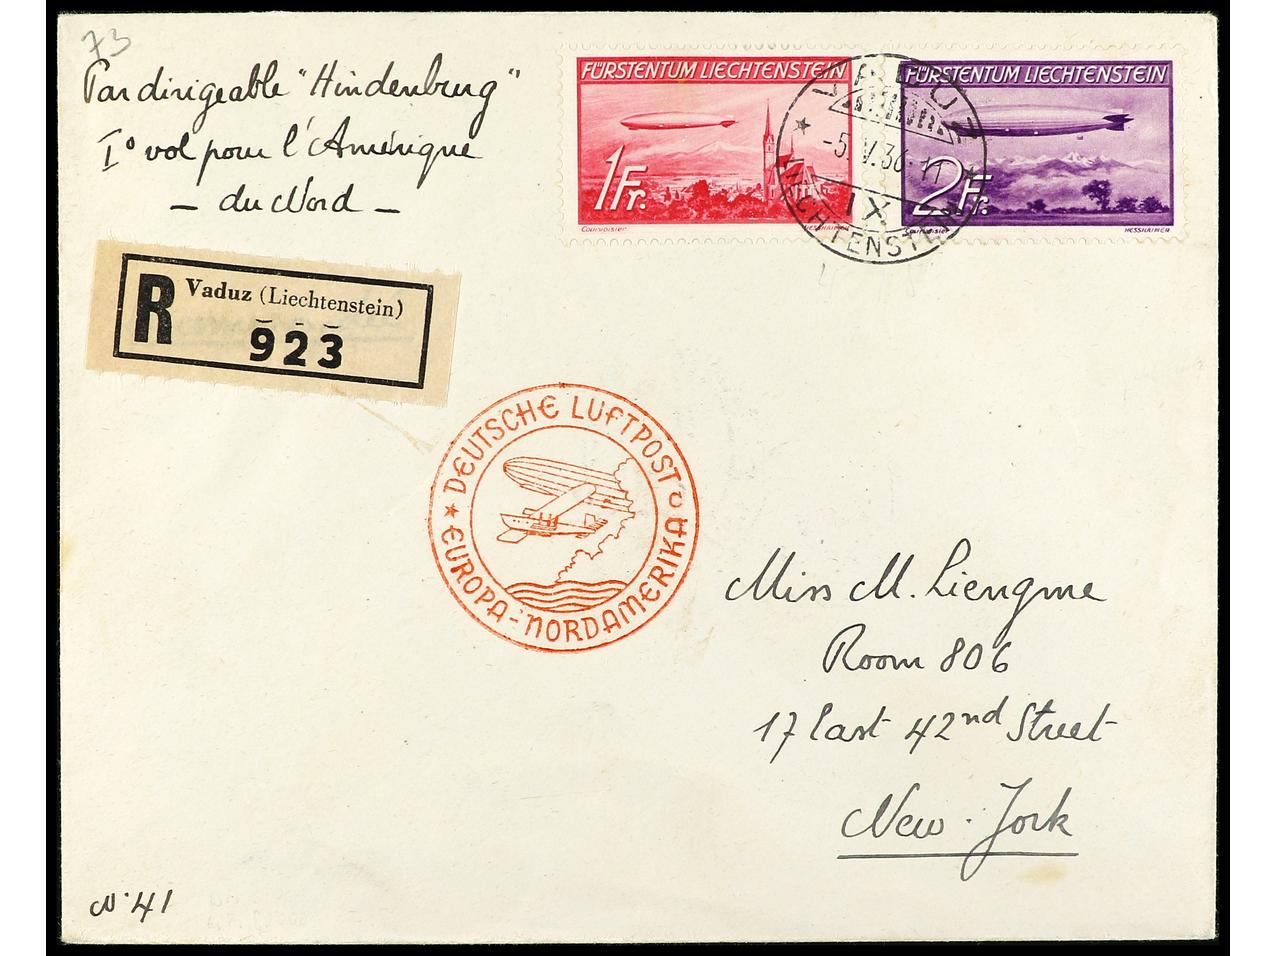 73
Par dirigeable "Hindenburg"
I° vol pour l'Amérique
- du Nord -
FÜRSTENTUM LIECHTENSTEIN
1Fr.
Courvoisier HESSHAIMER
FÜRSTENTUM LIECHTENSTEIN
2Fr.
Courvoisier HESSHAIMER
VADUZ
-5.V.36.11
IX
LIECHTENSTEIN
R Vaduz (Liechtenstein)
923
DEUTSCHE LUFTPOST
EUROPA-NORDAMERIKA
c
Miss M. Liengme
Room 806
17 East 42nd Street
New-York
N°41